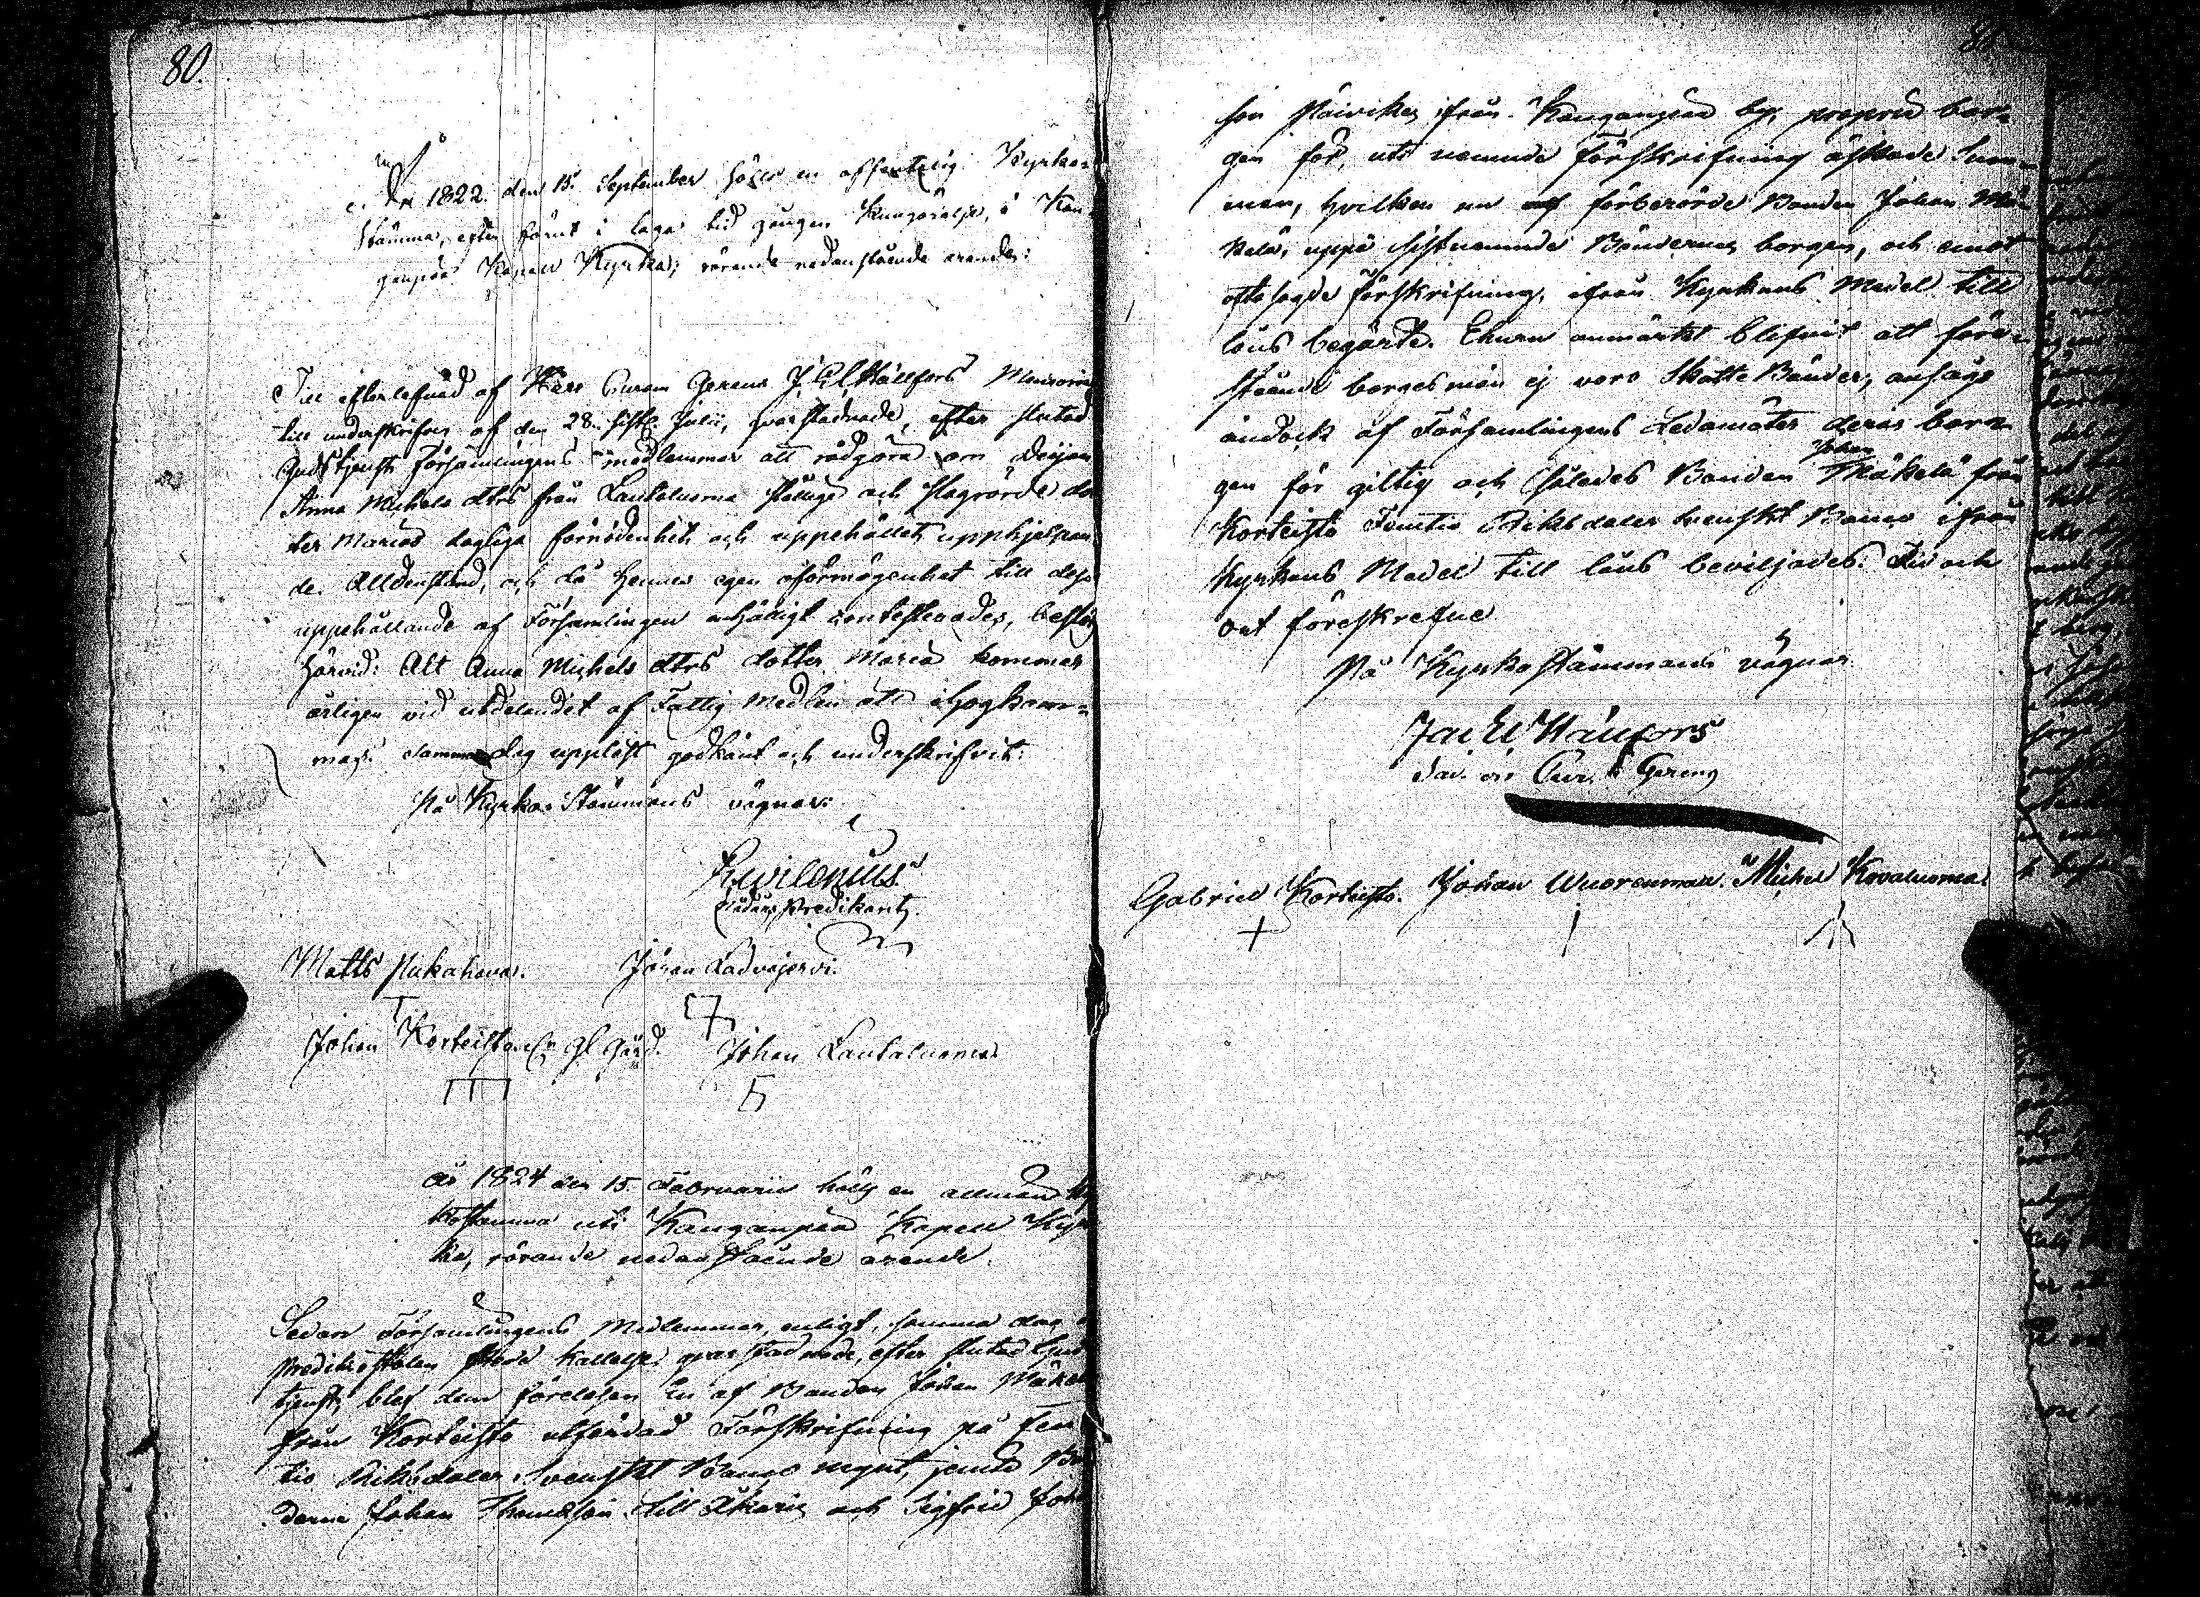 80.
År 1822. den 15. September hölts en offentelig Kyrko-
stämma, efter förut i laga tid gången Kungörelse, i Kau-
hajoki Kapell Kyrka; rörande nedanstående ärende:
Till efterlefnad af Herr Curam Gerens J. El. Hällfors
till underskrifvne af den 28. sistl. Julii, qvarstadnade, efter slutad
Gudstjenst Församlingens medlemmar att rådgöra om Deijan
Anna Michels dtrs från Lautaluoma och slagrörde do-
ter Marias dagliga förnödenhet och uppehället upphjelpan-
de. Alldenstund, och då hennes egen oförmögenhet till dess
uppehållande af Församlingen enhälligt contesterades, beslöts
härvid: Att Anna Michels dtrs dotter Maria kommer
årligen vid utdelandet af Fattig Medlen att ihogkom-
mas. samma dag uppläst godkänt och underskrifvit:
På Kyrko-Stämmans vägnar:
Matts Pukahova. Johan Ladvajervi.
Johan Korteisto Johan Lautaluoma
År 1824 den 15. Februarii hölls en allmän Kyr-
kostämma uti Kanganpää Kapell Kyr-
ka, rörande nedanstående ärende.
Sedan Församlingens Medlemmar, enligt, samma dag
predikostolen skede kallelse, qvarstadnade, efter slutad Guds-
tjenst, blef dem föreläsen en af Bonden Johan Mäkelä
från Korteisto utfärdad Förskrifning på Fem-
tio Riksdaler Svenskt Banco mynt, jemte Bön-
derne Johan Thomasson till Äkäris och Sigfrid Johans-
son Päivike ifrån Kanganpää by, proprie bor-
gen för, uti nemnde förskrifning äskade Sum-
man, hvilken nu af förberörde Bonden Johan Mä-
kelä, uppå sistnemnde Böndernes borgen, och emot
oftasagde förskrifning, ifrån Kyrkans Medel till
låns begärte. Ehuru anmärkt blifvit att före-
stående borgesmän ej voro Skatte Bönder, ansågs
ändock af Församlingens Ledamöter deras bor-
gen för giltig och således Bonden Johan Mäkelä från
Korteisto Femtio Riksdaler Svenskt Banco ifrån
Kyrkans Medel till låns beviljades. Tid och
ort föreskrefne
På Kyrko Stämmans vägnar
Gabriel Korteisto. Johan Wuorenmaa. Michel Kovaluoma